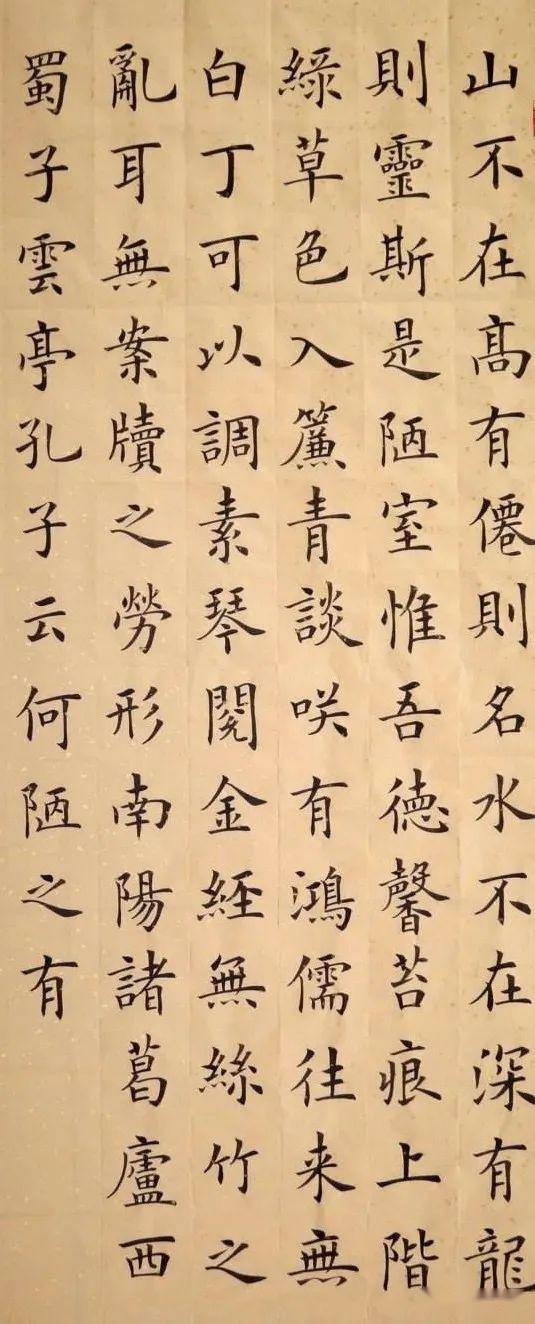 山不在高有僊則名水不在深有龍
則靈斯是陋室惟吾德馨苔痕上階
綠草色入簾青談咲有鴻儒往来無
白丁可以調素琴閱金經無絲竹之
亂耳無案牘之勞形南陽諸葛廬西
蜀子雲亭孔子云何陋之有